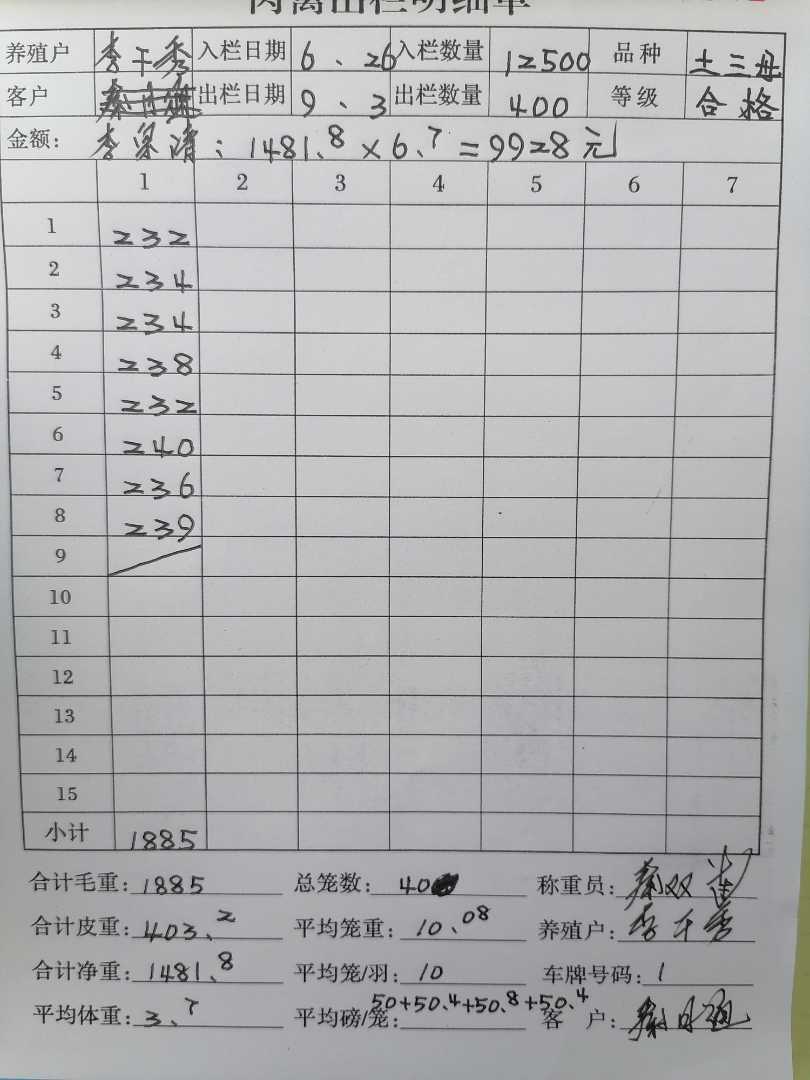 肉禽出栏明细单
养殖户 李干秀 入栏日期 6、26 入栏数量 12500 品种 土三母
客户 出栏日期 9、3 出栏数量 400 等级 合格
金额: 李果清: 1481.8 × 6.7 = 9928元
1 2 3 4 5 6 7
1 232
2 234
3 234
4 238
5 232
6 240
7 236
8 239
9
10
11
12
13
14
15
小计 1885
合计毛重: 1885 总笼数: 40 称重员:
合计皮重: 403.2 平均笼重: 10.08 养殖户: 李干秀
合计净重: 1481.8 平均笼/羽: 10 车牌号码: 1
平均体重: 3.7 平均磅/笼: 50+50.4+50.8+50.4 客 户: